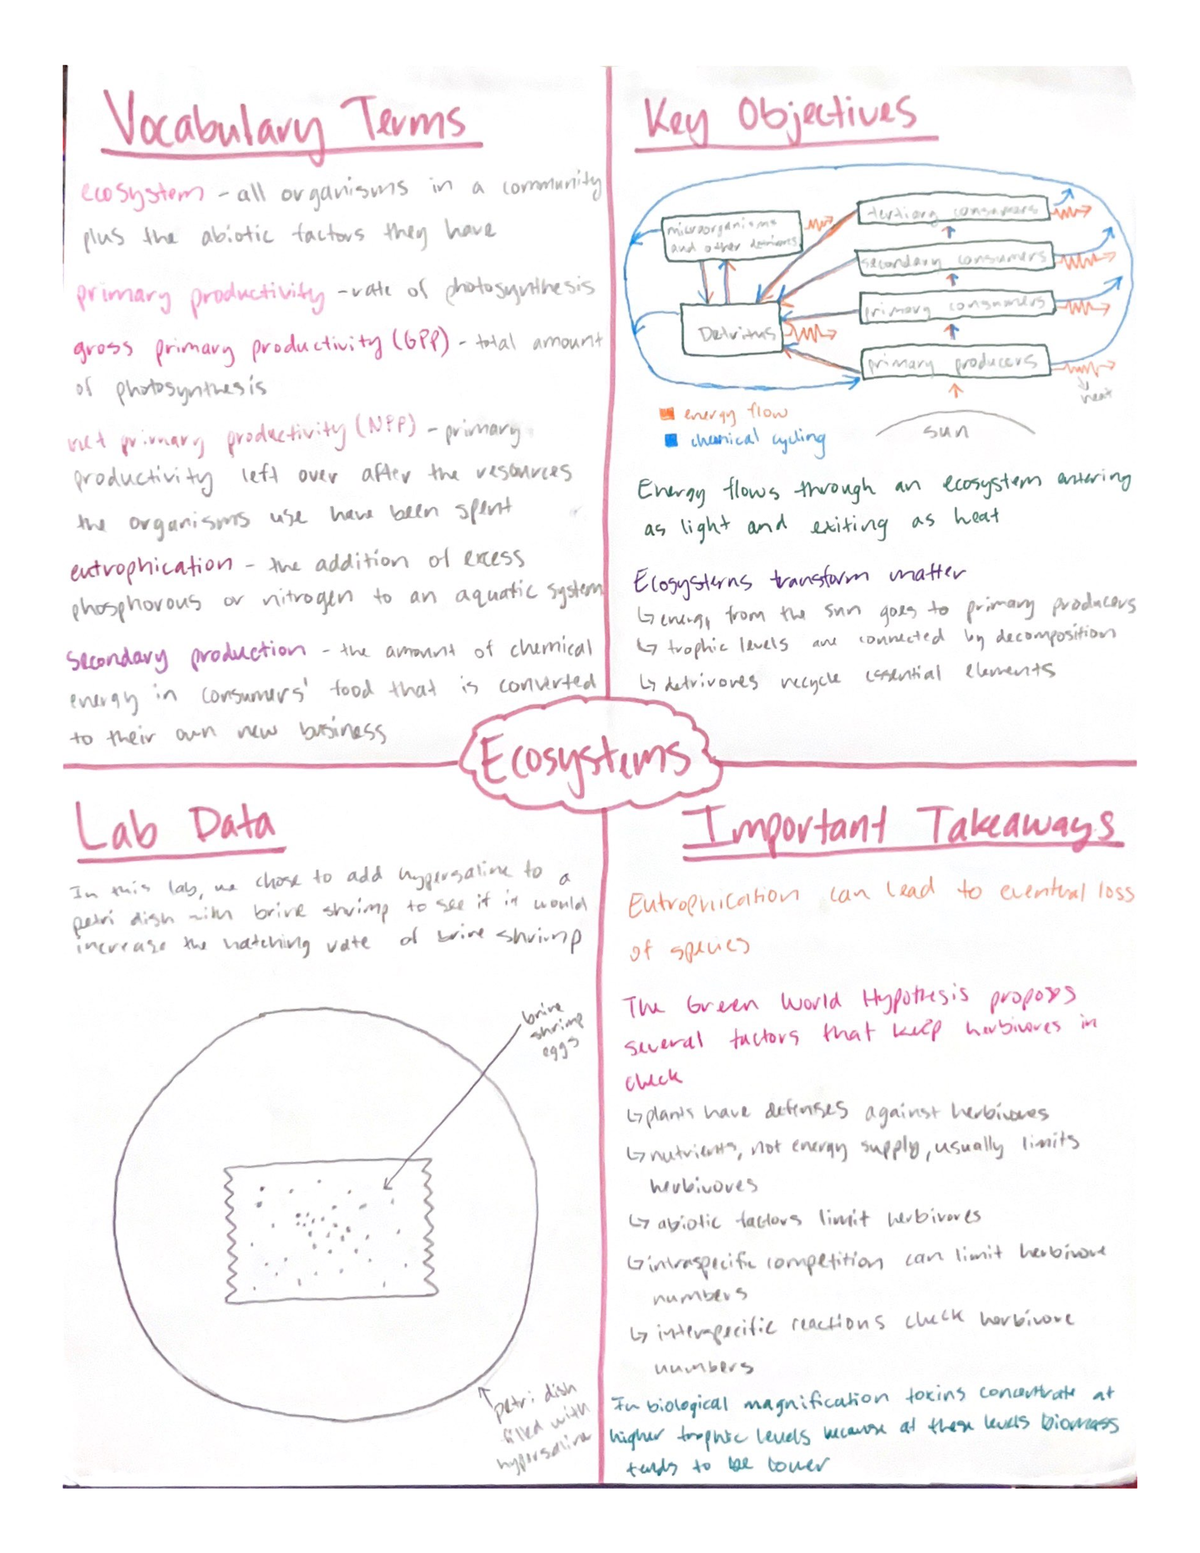 Vocabulary Terms
ecosystem - all organisms in a community
plus the abiotic factors they have
primary productivity - rate of photosynthesis
gross primary productivity (GPP) - total amount
of photosynthesis
net primary productivity (NPP) - primary
productivity left over after the resources
the organisms use have been spent
eutrophication - the addition of excess
phosphorous or nitrogen to an aquatic system
secondary production - the amount of chemical
energy in consumers' food that is converted
to their own new business
Key Objectives
microorganisms
and other
Detritus
tertiary consumers
secondary consumers
primary consumers
primary producers
heat
sun
energy flow
chemical cycling
Energy flows through an ecosystem entering
as light and exiting as heat
Ecosystems transform matter
↳ energy from the sun goes to primary producers
↳ trophic levels are connected by decomposition
↳ detrivores recycle essential elements
Ecosystems
Lab Data
In this lab, we chose to add hypersaline to a
petri dish with brine shrimp to see if it would
increase the hatching rate of brine shrimp
brine
shrimp
eggs
petri dish
filled with
hypersaline
Important Takeaways
Eutrophication can lead to eventual loss
of species
The Green World Hypothesis proposes
several factors that keep herbivores in
check
↳ plants have defenses against herbivores
↳ nutrients, not energy supply, usually limits
herbivores
↳ abiotic factors limit herbivores
↳ intraspecific competition can limit herbivore
numbers
↳ interspecific reactions check herbivore
numbers
In biological magnification toxins concentrate at
higher trophic levels because at these levels biomass
tends to be lower